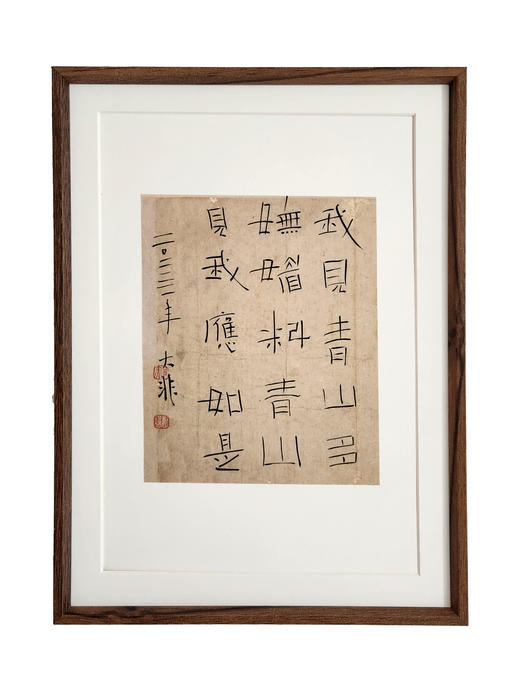 我見青山多
嫵媚料青山
見我應如是
二〇二三年 大非